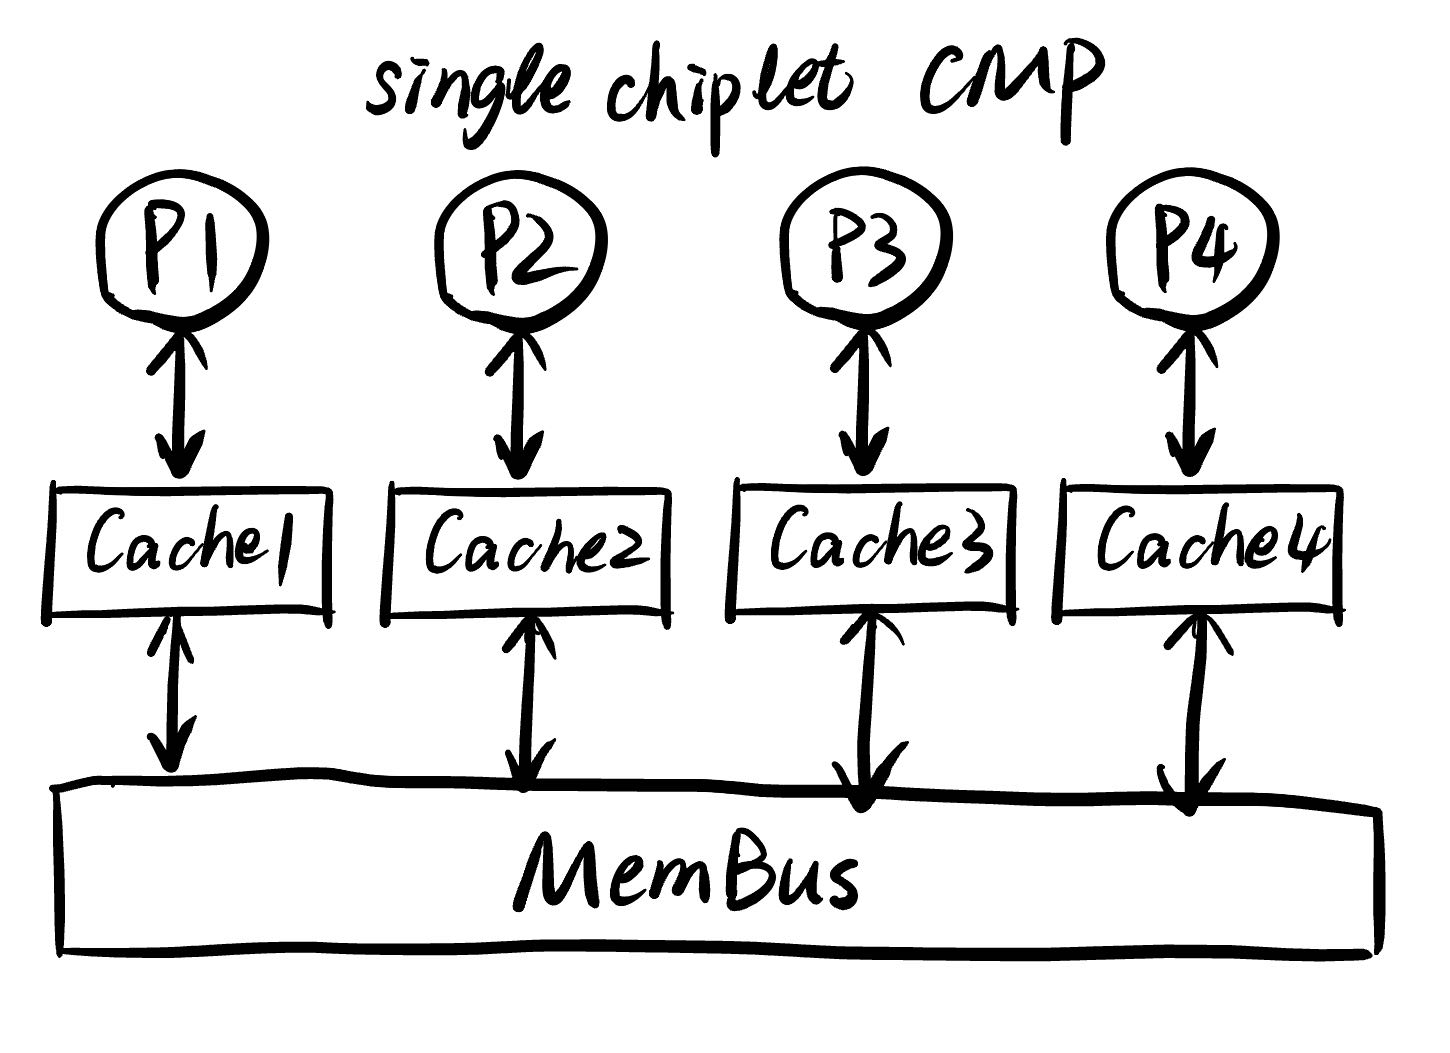 single chiplet CMP
P1 P2 P3 P4
Cache1 Cache2 Cache3 Cache4
MemBus